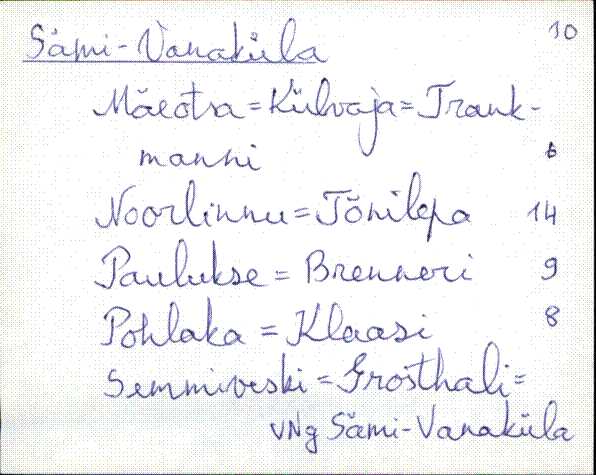 Sämi-Vanaküla 10
Mäeotsa = Külvaja = Trank-
manni 6
Noorlinnu = Tõnilepa 14
Paulukse = Brenneri 9
Pohlaka = Klaasi 8
Semmiveski = Grosthali =
VNg Sämi-Vanaküla